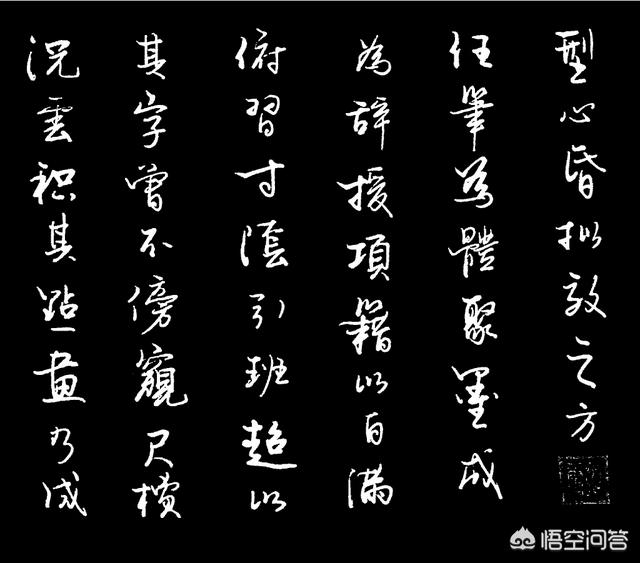 況雲积其點畫乃成
其字曾不傍窺尺櫝
俯習寸陰引班超以
為辞援項籍以自滿
任筆為體聚墨成
型心昏拟效之方
悟空问答